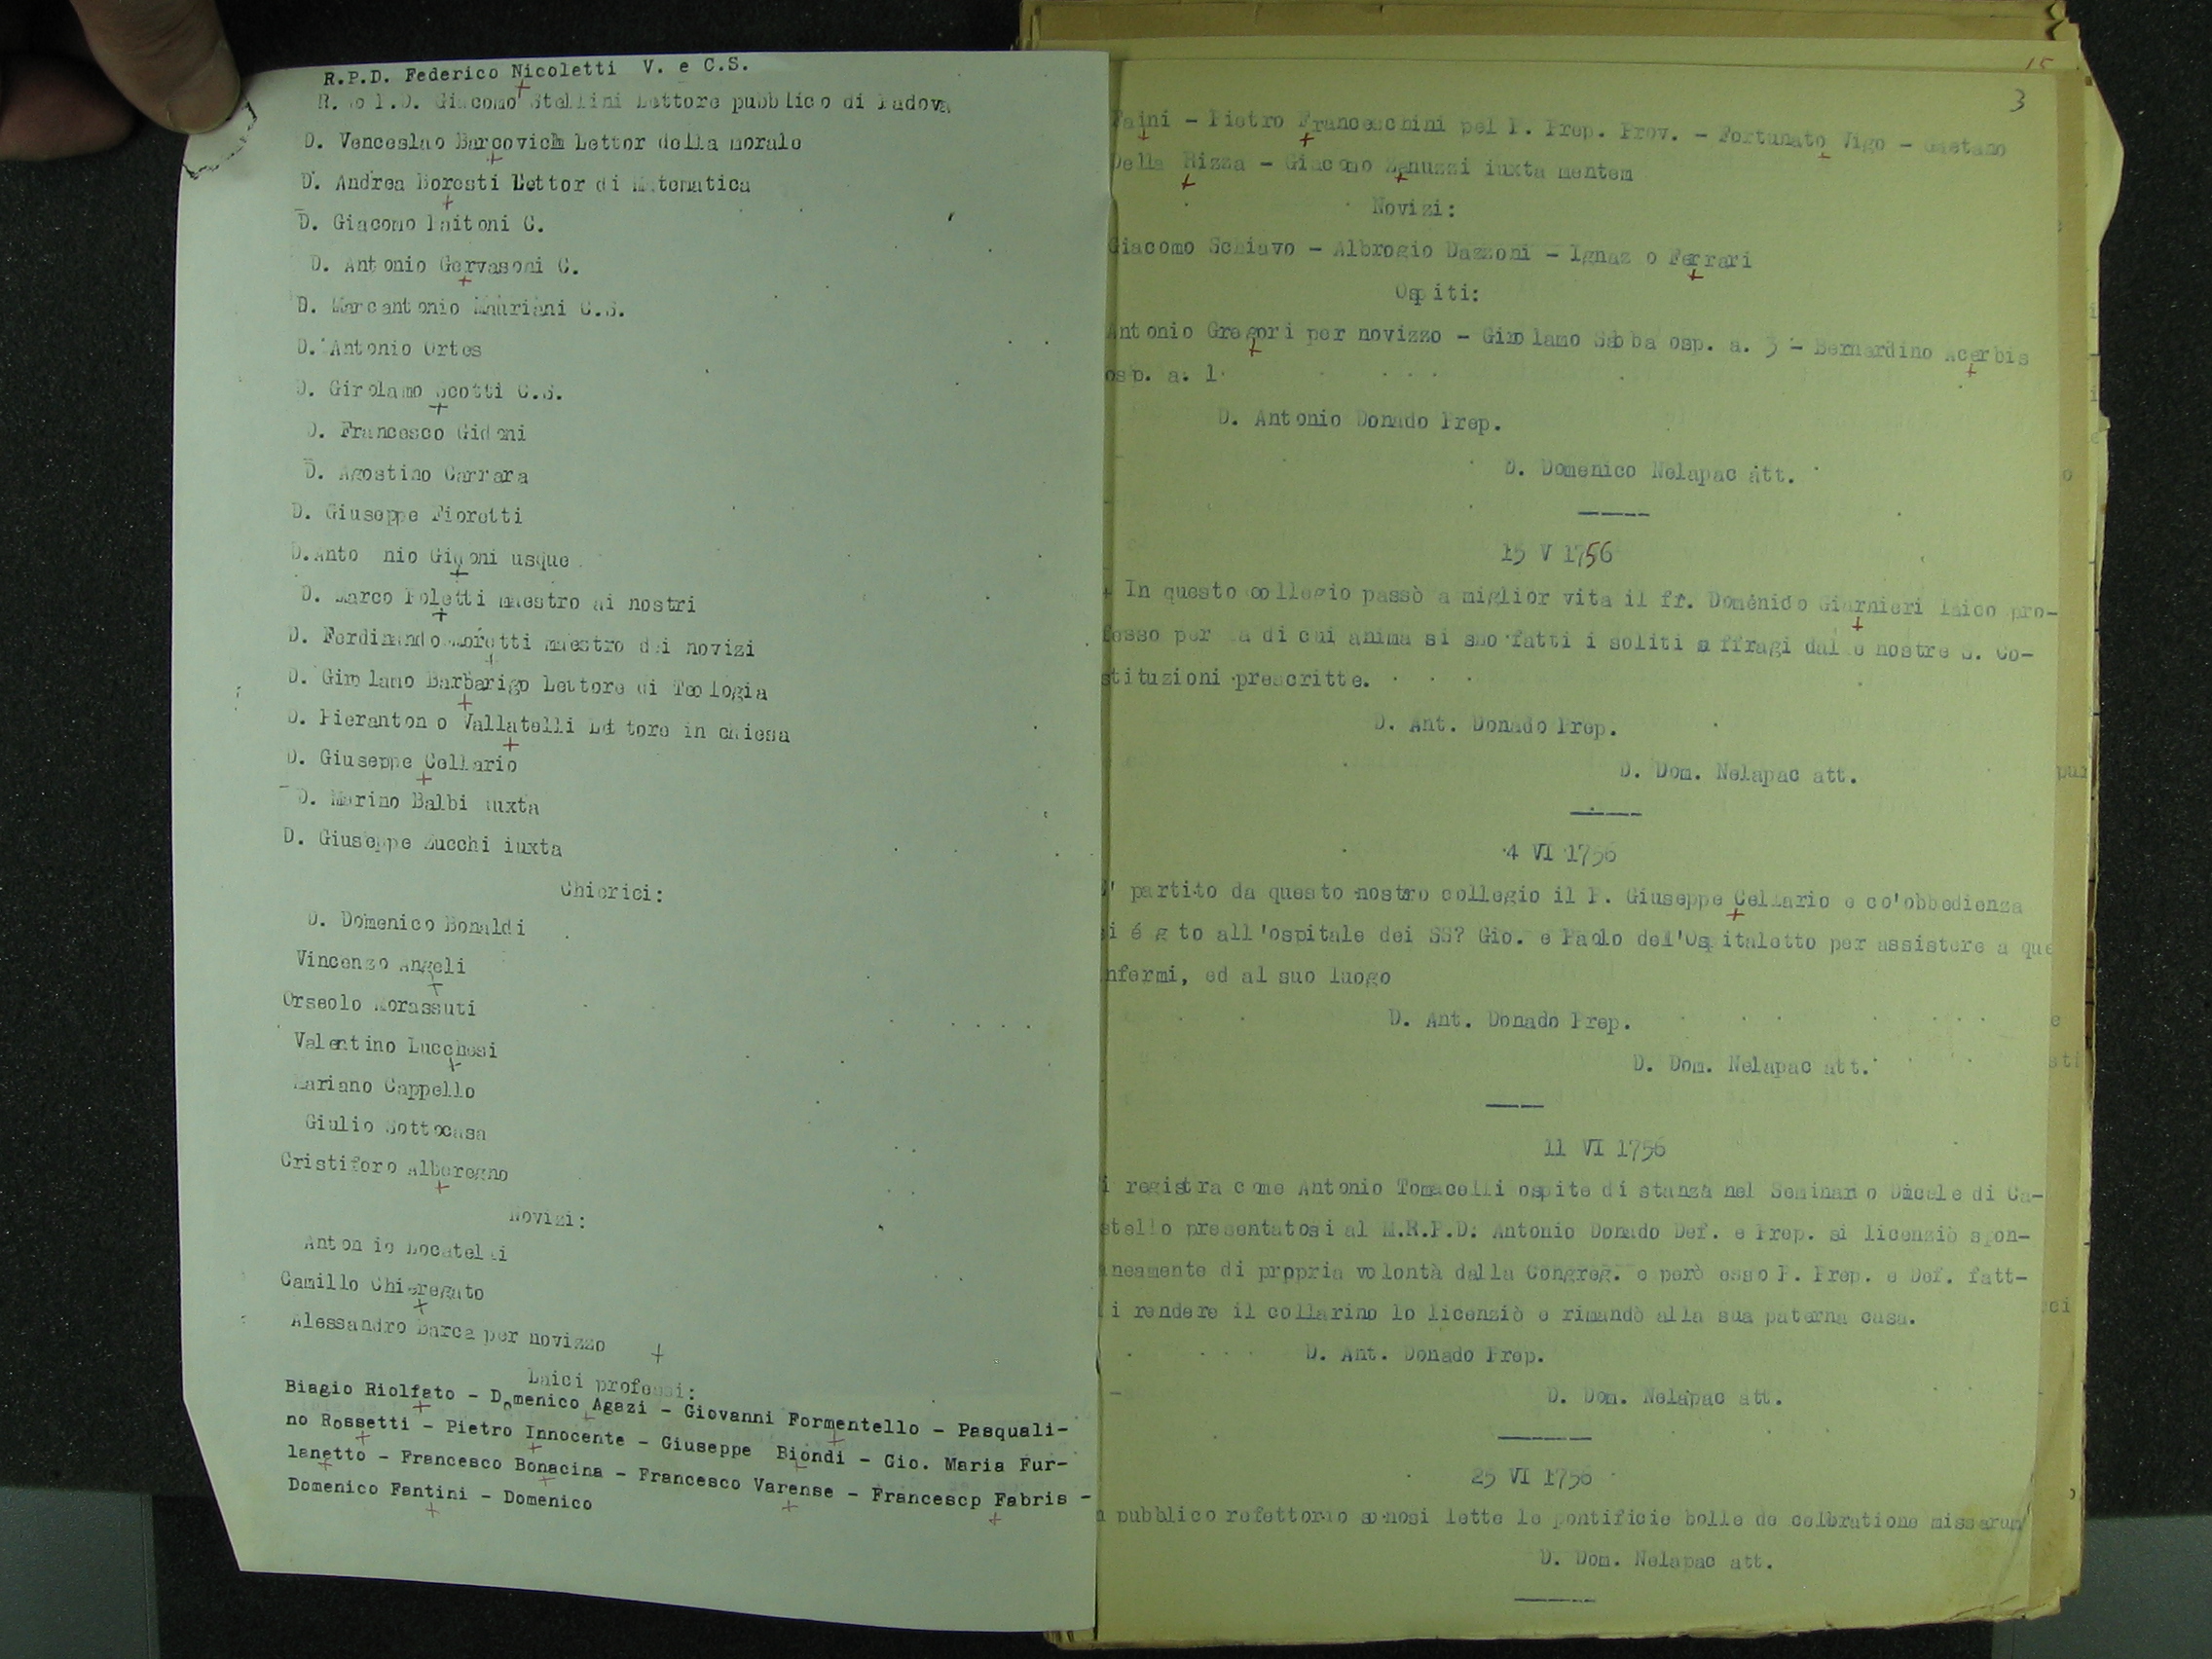 R.P.D. Federico Nicoletti V. e C.S.
Giacomo Stellini Lettore pubblico di Padova
D. Venceslao Barcovich Lettor della morale
D. Andrea Boresti Lettor di Matematica
D. Giacomo C.
D. Antonio Gervasoni C.
D. Marcantonio C.S.
D. Antonio Ortes
D. Girolamo Scotti C.S.
D. Francesco Gidoni
D. Agostino Carrara
D. Giuseppe Fioretti
D.Anto nio usque
D. Marco Poletti maestro ai nostri
D. Ferdinando Moretti maestro dei novizi
D. Girolamo Barbarigo Lettore di Teologia
D. Pieranton o Vallatelli tore in chiesa
D. Giuseppe Cellario
D. Marino Balbi iuxta
D. Giuseppe Zucchi iuxta
Chierici:
D. Domenico Bonaldi
Vincenzo Angeli
Orseolo Morassuti
Valentino Lucchesi
Mariano Cappello
Giulio Sottocasa
Cristiforo Alberegno
Novizi:
Antonio Locatelli
Camillo Chieregato
Alessandro Barca per novizzo
Laici professi:
Biagio Riolfato - Domenico Agazi - Giovanni Formentello - Pasquali-
no Rossetti - Pietro Innocente - Giuseppe Biondi - Gio. Maria Fur-
lanetto - Francesco Bonacina - Francesco Varense - Francescp Fabris -
Domenico Fantini - Domenico
15
3
Faini - Pietro Franceschini pel P. Prep. Prov. - Fortunato Vigo - Gaetano
Della Rizza - Giacomo Zanuzzi iuxta mentem
Novizi:
Giacomo Schiavo - Albrogio Dazzoni - Ignaz o Ferrari
Ospiti:
Antonio Gregori per novizzo - Girolamo Sabba osp. a. 3 - Bernardino Acerbis
osp. a. 1
D. Antonio Donado Prep.
D. Domenico Nelapac att.
15 V 1756
In questo collegio passò a miglior vita il ff. Doménido Giarnieri laico pro-
fesso per la di cui anima si sno fatti i soliti suffragi dalle nostre S. Co-
stituzioni prescritte.
D. Ant. Donado Prep.
D. Dom. Nelapac att.
4 VI 1756
E' partito da questo nostro collegio il P. Giuseppe Cellario e co'obbedienza
i é g to all'ospitale dei SS? Gio. e Paolo del'Ospitaletto per assistere a que
nfermi, ed al suo luogo
D. Ant. Donado Prep.
D. Dom. Nelapac att.
11 VI 1756
i registra come Antonio Tomacelli ospite di stanza nel Seminario Dicale di Ca-
stello presentatosi al M.R.P.D: Antonio Donado Def. e Prep. si licenziò spon-
neamente di propria volontà dalla Congreg. e però esso P. Prep. e Def. fatt-
i rendere il collarino lo licenziò e rimandò alla sua paterna casa.
D. Ant. Donado Prep.
D. Dom. Nelapac att.
25 VI 1756
n pubblico refettorio sonosi lette le pontificie bolle de celbratione missarum
D. Dom. Nelapac att.